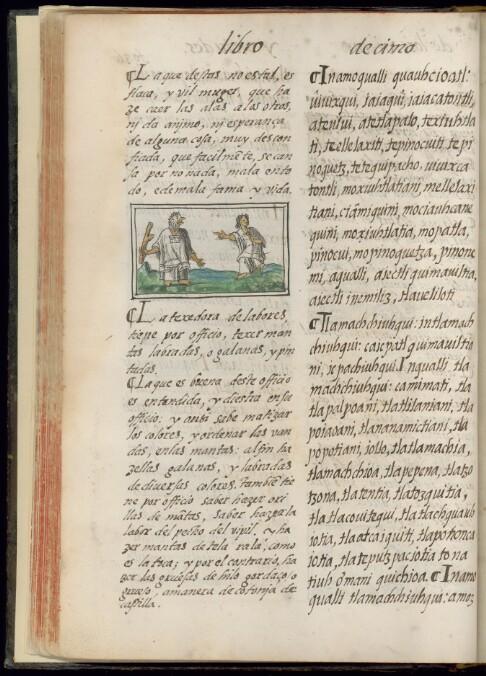 libro
decimo
¶ La que destas no es tal, es
flaca, y vil muger, que ha
ze caer las alas a las otras,
ni da animo, ni esperança
de alguna cosa, muy descon
fiada, que facilmēte, se can
sa por no nada, mala en to
do, e de mala fama y vida.
¶ La texedora de labores,
tiene por officio, texer man
tas labradas, o galanas, y pin
tadas.
¶ La que es buena deste officio
es entendida, y diestra en su
officio: y ansi sabe matizar
los colores, y ordenar las van
das, en las mantas: al fin ha
zellas galanas, y labradas
de diuersas colores. tambiē tie
ne por officio saber hazer ori
llas de mātas, saber hazer la
labor del pecho del vipil, y ha
zer mantas de tela rala, como
es la toca; y por el contrario, ha
zer las gruesas de hilo gordaço, o
grueso, a manera de cotonia de
castilla.
¶ In amo qualli quauhcioatl:
atetlapalo,
tetequipacho,
tontli, moxiuhtlatiani, mellelaxi
tiani, ciāmiquini, mociauhcane
quini, moxiuhtlatia, mopatla,
pinocui, mopinoquetza, pinone
mi, aqualli, aiectli quimauiltia,
aiectli inemiliz, tlaueliloti
¶ Tlamachchiuhqui: in tlamach
chiuhqui: ca icpatl quimauiltia
ni, icpachiuhqui. In qualli tla
machchiuhqui: tlatlilaniani, tla
potiani, iollo, tlatlamachia,
tlamachchioa, tlapepena, tlatzo
tzona, tlatentia,
iotia, tlaacaiquiti, tlapotonca
iotia, tlatepitzpaciotia to na
tiuh ōmani quichioa. ¶ In amo
qualli tlamachchiuhqui: amoz